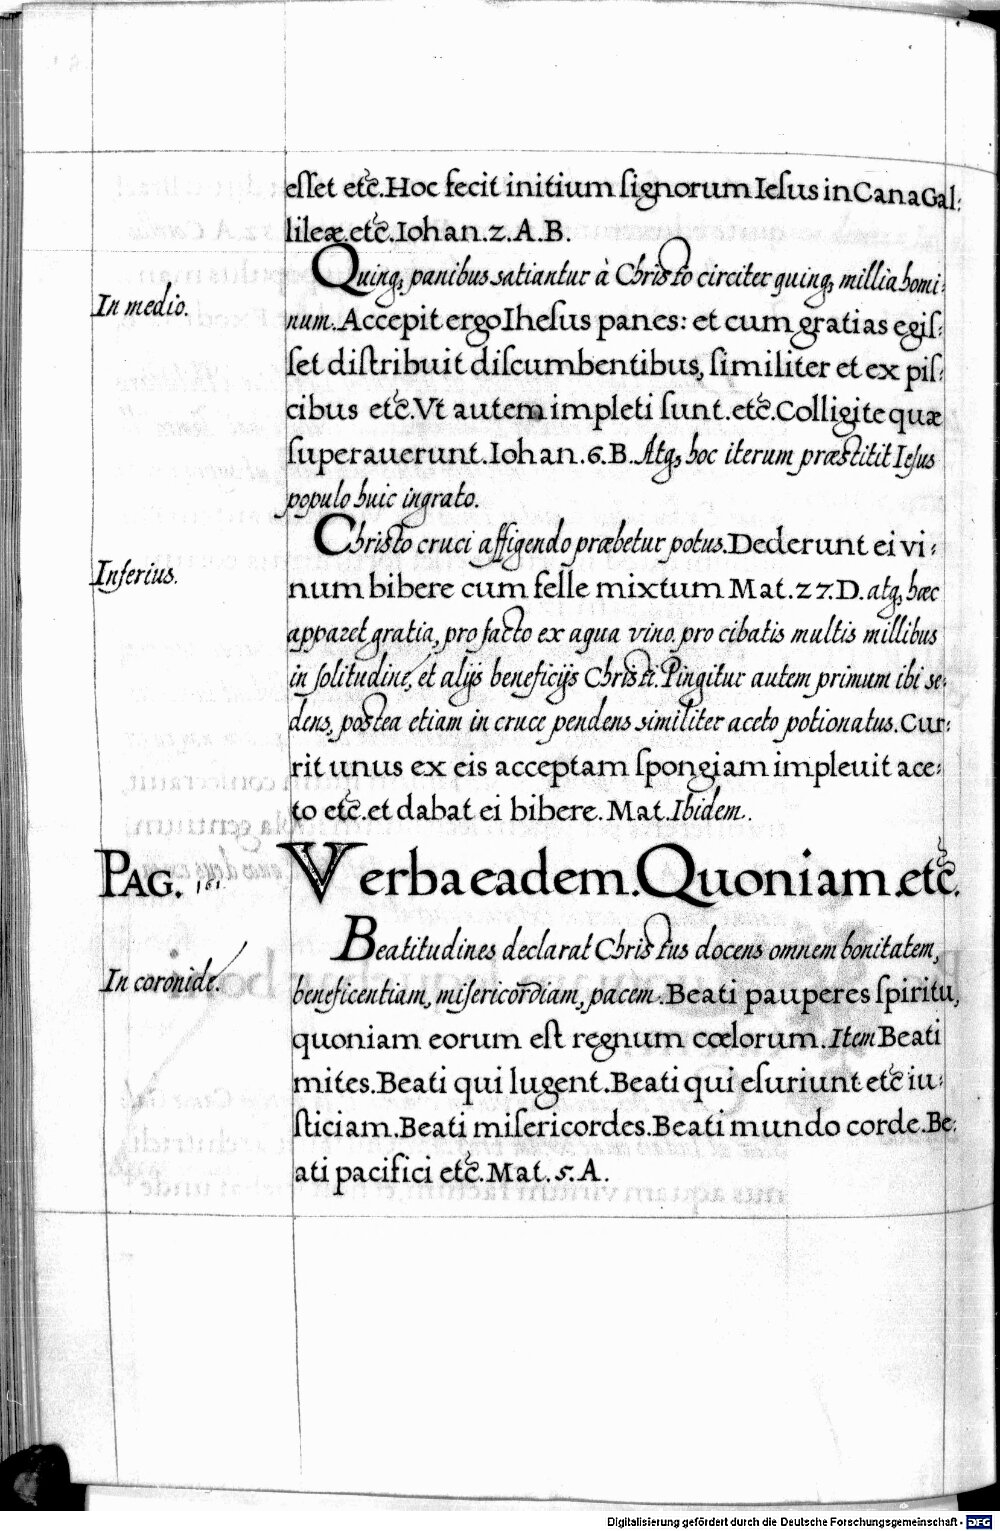 eſſet etc̃. Hoc fecit initium ſignorum Ieſus in Cana Gal:
lileæ. etc̃. Iohan. 2. A. B.
In medio.
Quinq₃ panibus satiantur à Christo circiter quinq₃ millia homi:
num. Accepit ergo Iheſus panes: et cum gratias egiſ:
ſet diſtribuit diſcumbentibus, ſimiliter et ex piſ:
cibus etc̃. Vt autem impleti ſunt. etc̃. Colligite quæ
ſuperauerunt. Iohan. 6. B. Atq₃ hoc iterum præstitit Ieſus
populo huic ingrato.
Inferius.
Christo cruci affigendo præbetur potus. Dederunt ei vi:
num bibere cum felle mixtum Mat. 27. D. atq₃ hæc
apparet gratia, pro facto ex aqua vino, pro cibatis multis millibus
in ſolitudine, et alijs beneficijs Christi. Pingitur autem primum ibi se:
dens, postea etiam in cruce pendens similiter aceto potionatus. Cur:
rit unus ex eis acceptam ſpongiam impleuit ace:
to etc̃. et dabat ei bibere. Mat. Ibidem.
PAG. 161.
Verba eadem. Quoniam. etc̃.
In coronide.
Beatitudines declarat Christus docens omnem bonitatem,
beneficentiam, miſericordiam, pacem. Beati pauperes ſpiritu,
quoniam eorum eſt regnum cœlorum. Item Beati
mites. Beati qui lugent. Beati qui eſuriunt etc̃ iu:
ſticiam. Beati miſericordes. Beati mundo corde. Be:
ati pacifici etc̃. Mat. 5. A.
Digitalisierung gefördert durch die Deutsche Forschungsgemeinschaft - DFG